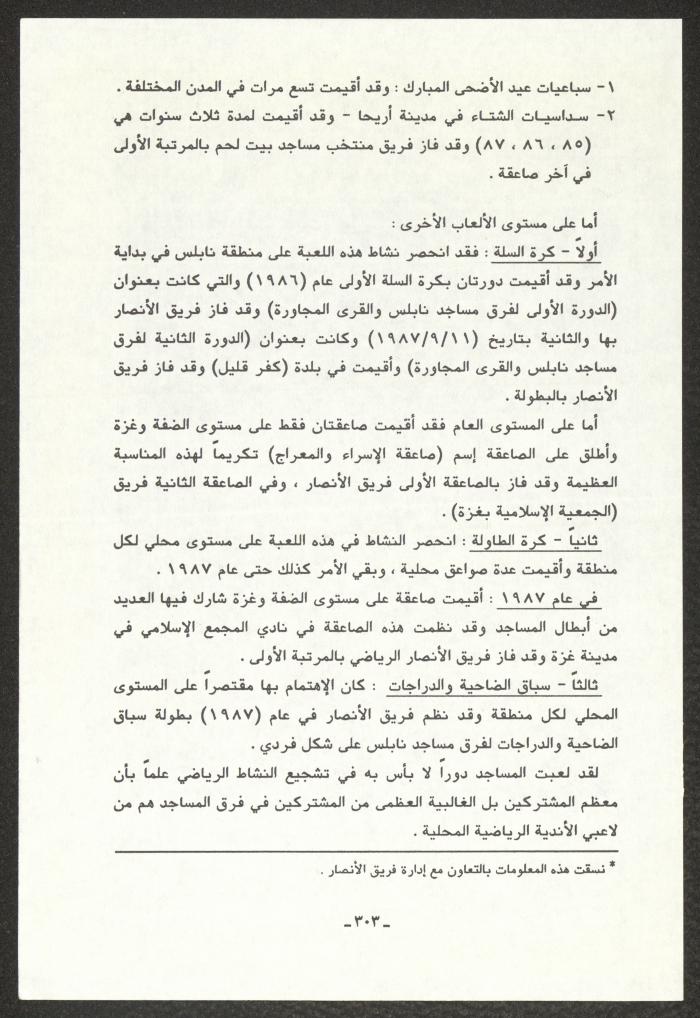 ١- سباعيات عيد الأضحى المبارك : وقد أقيمت تسع مرات في المدن المختلفة .
٢- سداسيات الشتاء في مدينة أريحا - وقد أقيمت لمدة ثلاث سنوات هي
(٨٥ ، ٨٦ ، ٨٧) وقد فاز فريق منتخب مساجد بيت لحم بالمرتبة الأولى
في آخر صاعقة .
أما على مستوى الألعاب الأخرى :
أولاً - كرة السلة : فقد انحصر نشاط هذه اللعبة على منطقة نابلس في بداية
الأمر وقد أقيمت دورتان بكرة السلة الأولى عام (١٩٨٦) والتي كانت بعنوان
(الدورة الأولى لفرق مساجد نابلس والقرى المجاورة) وقد فاز فريق الأنصار
بها والثانية بتاريخ (١٩٨٧/٩/١١) وكانت بعنوان (الدورة الثانية لفرق
مساجد نابلس والقرى المجاورة) وأقيمت في بلدة (كفر قليل) وقد فاز فريق
الأنصار بالبطولة .
أما على المستوى العام فقد أقيمت صاعقتان فقط على مستوى الضفة وغزة
وأطلق على الصاعقة إسم (صاعقة الإسراء والمعراج) تكريماً لهذه المناسبة
العظيمة وقد فاز بالصاعقة الأولى فريق الأنصار ، وفي الصاعقة الثانية فريق
(الجمعية الإسلامية بغزة) .
ثانياً - كرة الطاولة : انحصر النشاط في هذه اللعبة على مستوى محلي لكل
منطقة وأقيمت عدة صواعق محلية ، وبقي الأمر كذلك حتى عام ١٩٨٧ .
في عام ١٩٨٧ : أقيمت صاعقة على مستوى الضفة وغزة شارك فيها العديد
من أبطال المساجد وقد نظمت هذه الصاعقة في نادي المجمع الإسلامي في
مدينة غزة وقد فاز فريق الأنصار الرياضي بالمرتبة الأولى .
ثالثاً - سباق الضاحية والدراجات : كان الإهتمام بها مقتصراً على المستوى
المحلي لكل منطقة وقد نظم فريق الأنصار في عام (١٩٨٧) بطولة سباق
الضاحية والدراجات لفرق مساجد نابلس على شكل فردي .
لقد لعبت المساجد دوراً لا بأس به في تشجيع النشاط الرياضي علماً بأن
معظم المشتركين بل الغالبية العظمى من المشتركين في فرق المساجد هم من
لاعبي الأندية الرياضية المحلية .
* نسقت هذه المعلومات بالتعاون مع إدارة فريق الأنصار .
ـ ٣٠٣ ـ